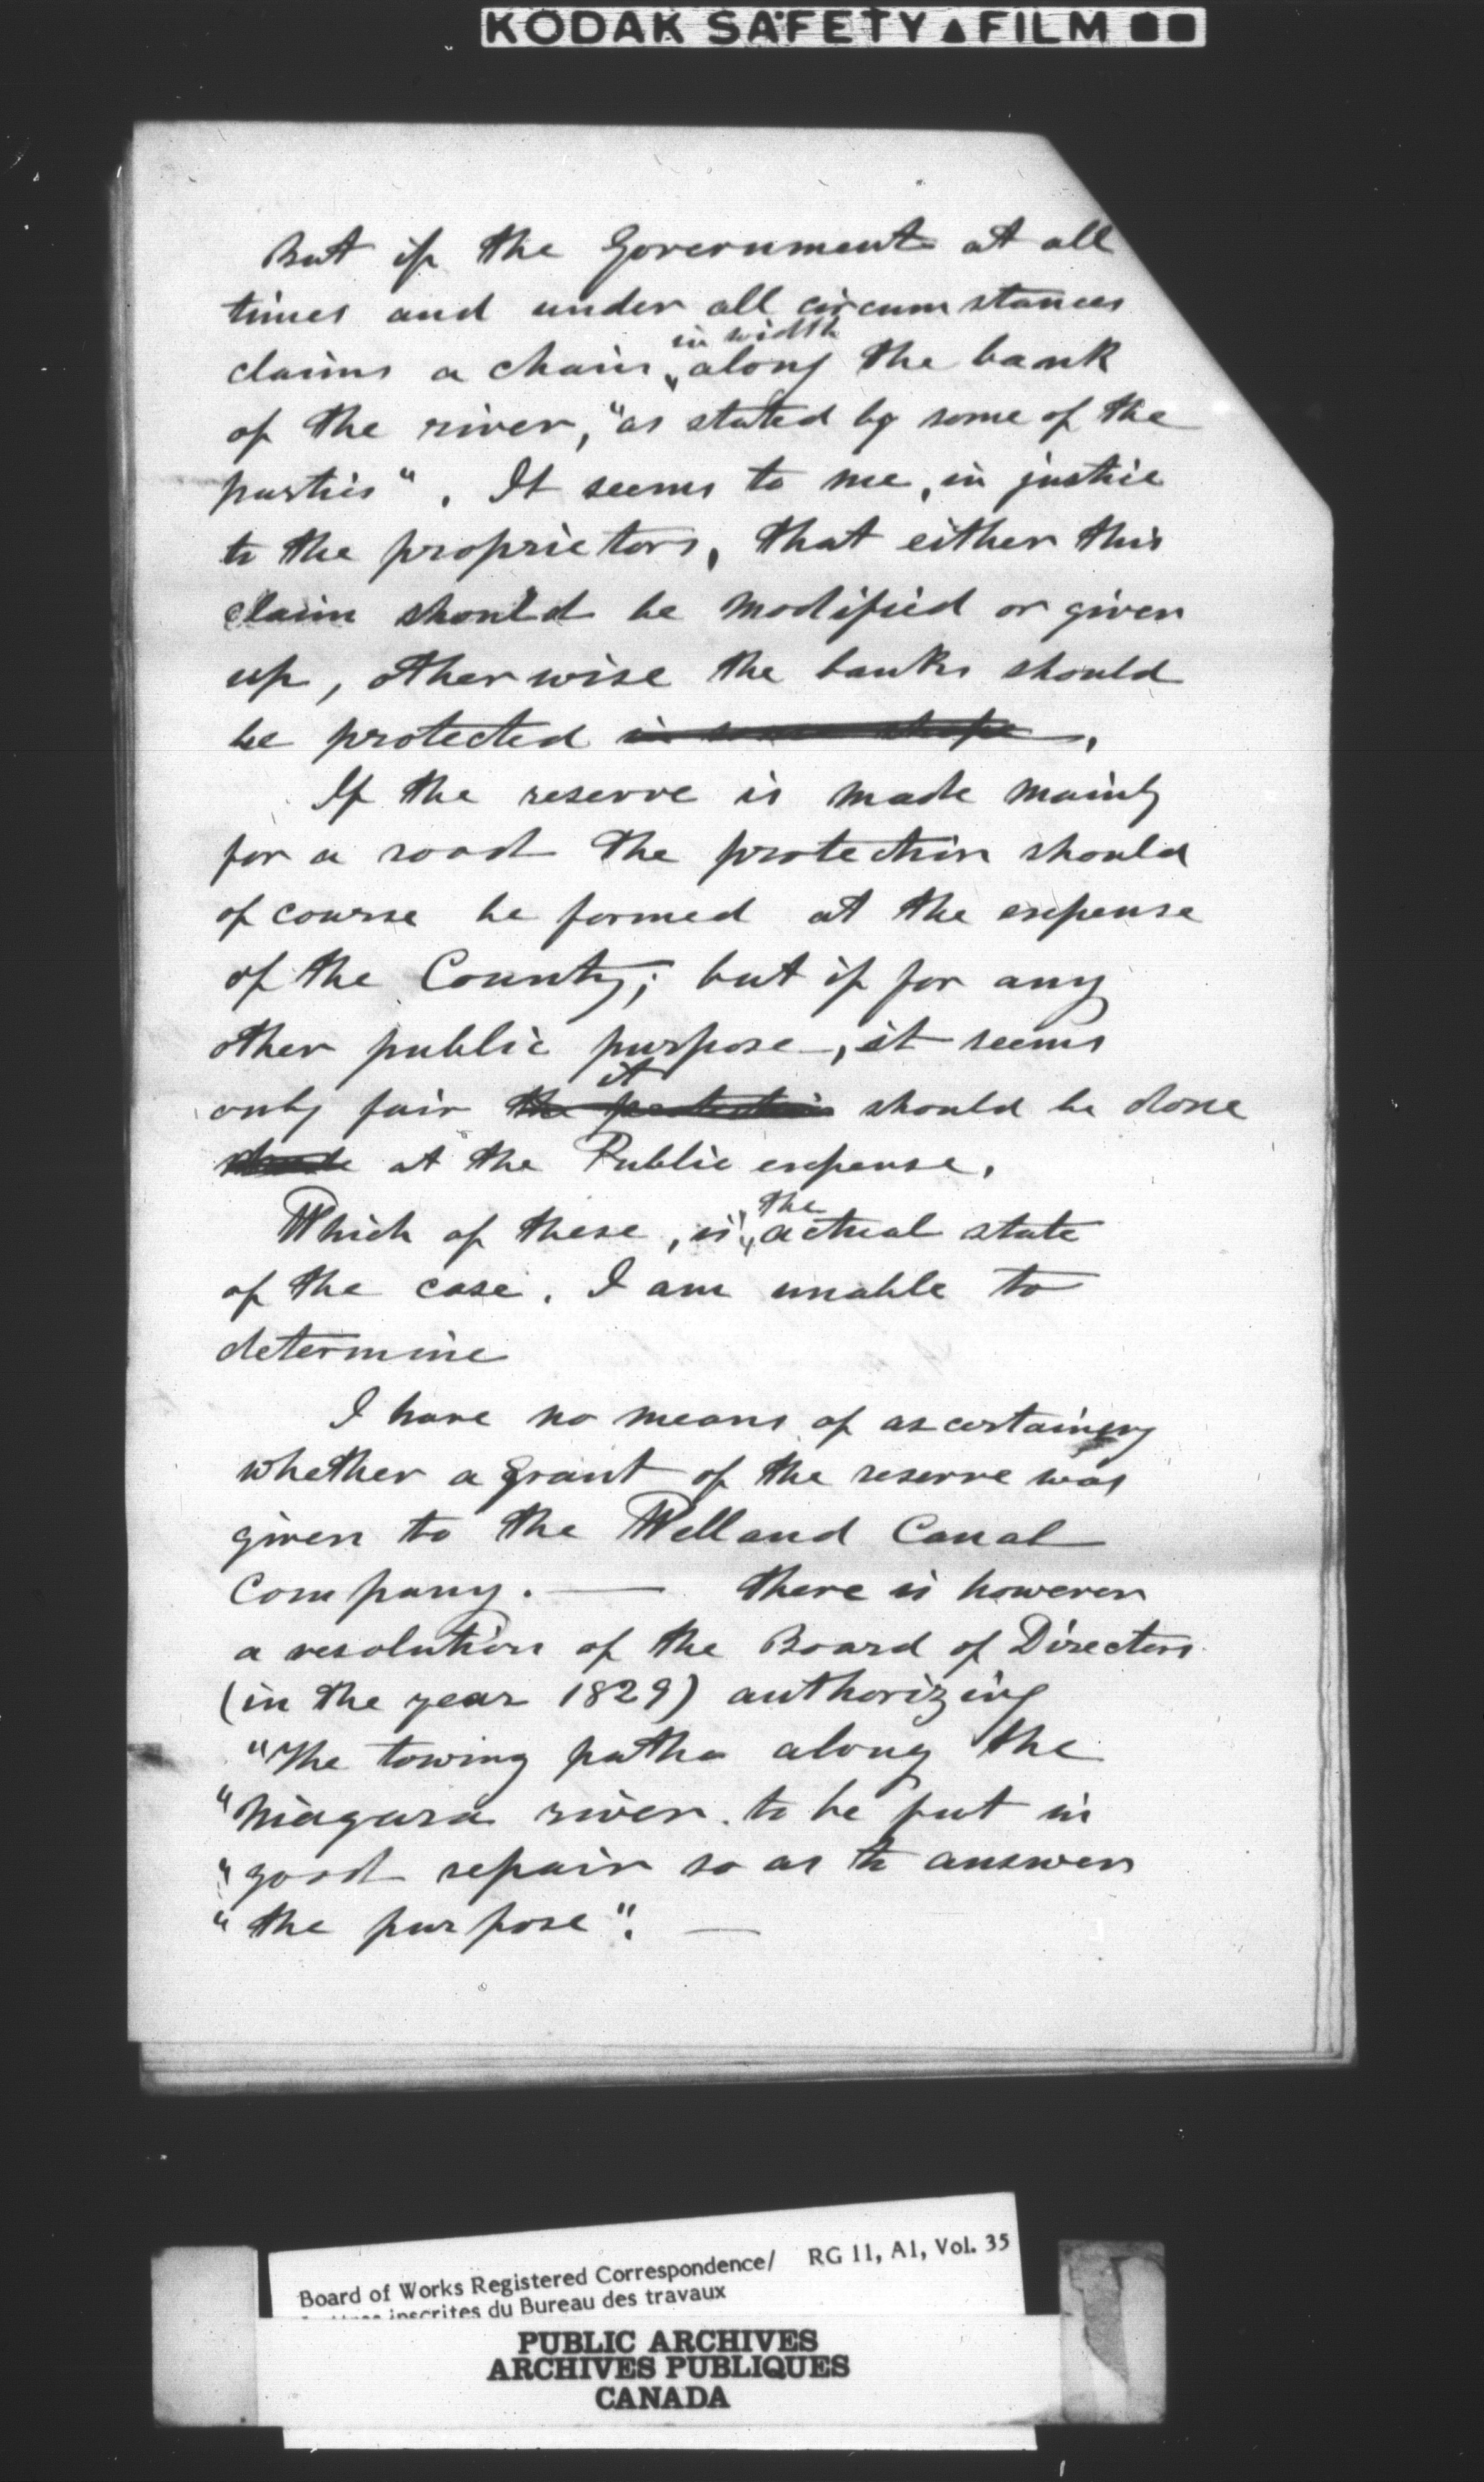 KODAK SAFETY ▲ FILM ■■
But if the Government at all
times and under all circumstances
in width
claims a chain along the bank
of the river, "as stated by some of the
parties". It seems to me, in justice
to the proprietors, that either this
claim should be modified or given
up, otherwise the banks should
be protected in some shape.
If the reserve is made mainly
for a road the protection should
of course be formed at the expense
of the County; but if for any
other public purpose, it seems
it
only fair the protection should be done
at the Public expense.
the
Which of these, is actual state
of the case. I am unable to
determine
I have no means of ascertaining
whether a grant of the reserve was
given to the Welland Canal
Company. — there is however
a resolution of the Board of Directors
(in the year 1829) authorizing
"The towing paths along the
"Niagara river to be put in
"good repair so as to answer
"the purpose". —
Board of Works Registered Correspondence/ RG 11, A1, Vol. 35
inscrites du Bureau des travaux
PUBLIC ARCHIVES
ARCHIVES PUBLIQUES
CANADA